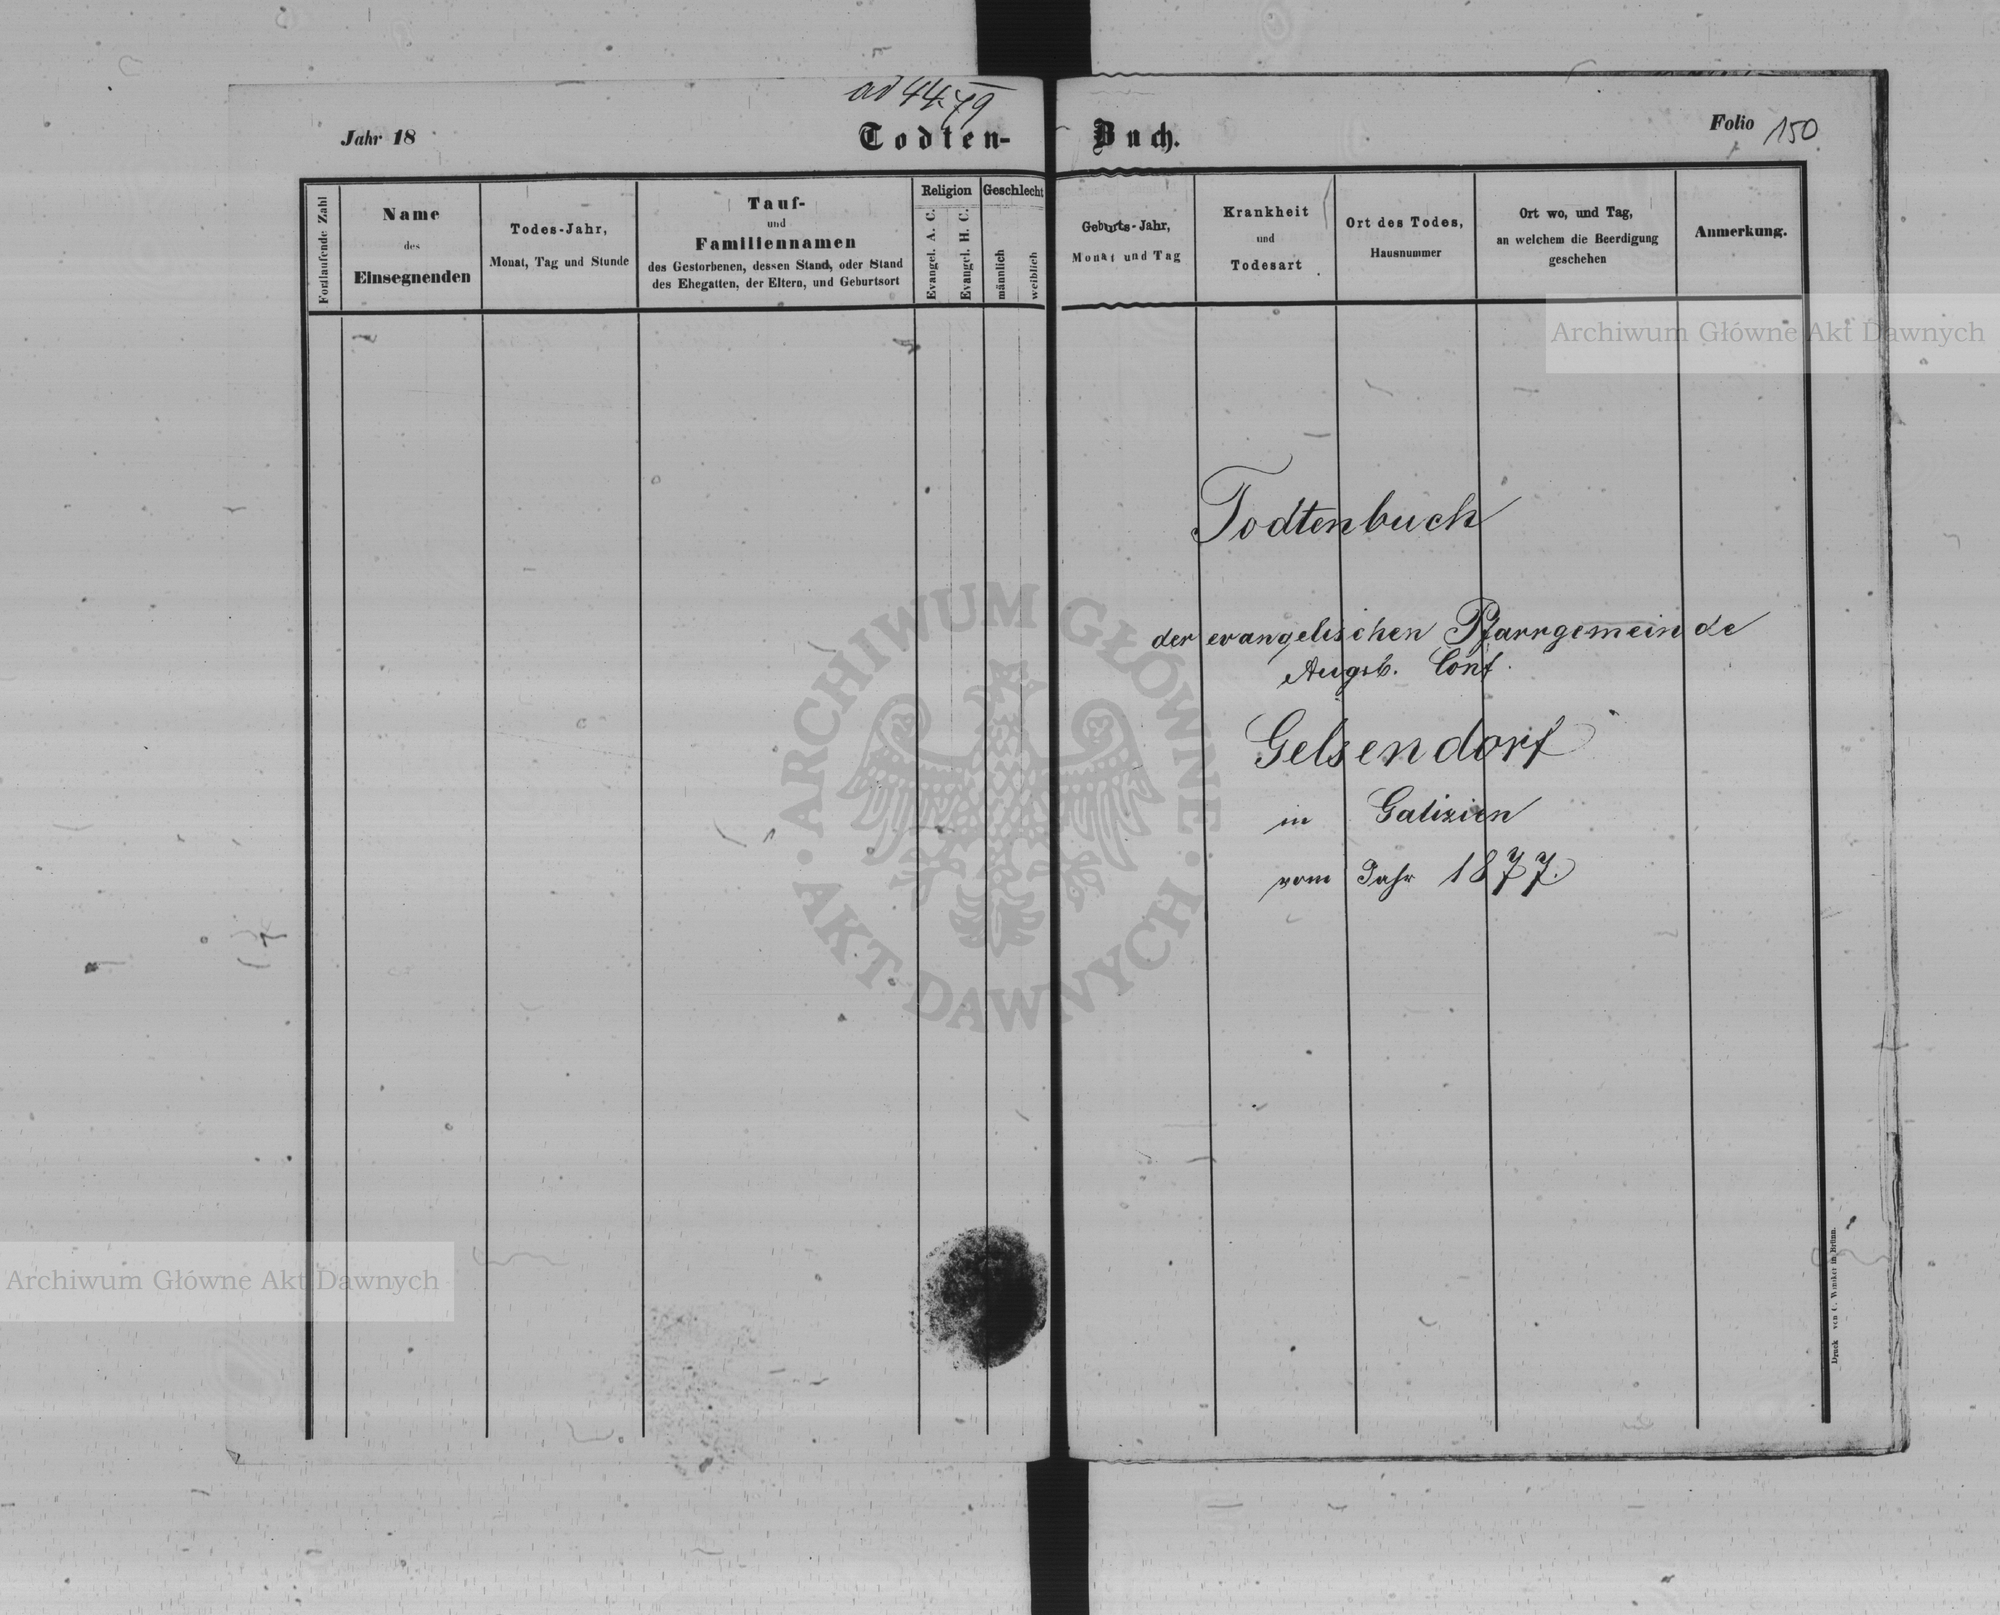 ad 44.79
Jahr 18
Todten-
Buch.
Folio 150
Fortlaufende Zahl
Name
des
Einsegnenden
Todes-Jahr,
Monat, Tag und Stunde
Tauf-
und
Familiennamen
des Gestorbenen, dessen Stand, oder Stand
des Ehegatten, der Eltern, und Geburtsort
Religion
Evangel. A. C.
Evangel. H. C.
Geschlecht
männlich
weiblich
Geburts-Jahr,
Monat und Tag
Krankheit
und
Todesart
Ort des Todes,
Hausnummer
Ort wo, und Tag,
an welchem die Beerdigung
geschehen
Anmerkung.
Archiwum Główne Akt Dawnych
Todtenbuch
der evangelischen Pfarrgemeinde
Augsb. Conf.
Gelsendorf
in Galizien
vom Jahr 1877.
ARCHIWUM GŁÓWNE
AKT DAWNYCH
Archiwum Główne Akt Dawnych
Druck von C. Winiker in Brünn.